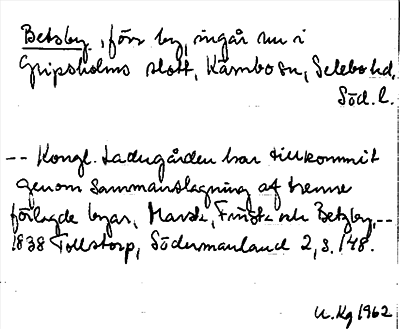 Betsby, förr by, ingår nu i
Gripsholms slott, Kärnbo sn, Selebo hd,
Söd. l.
-- Kongl. Ladugården har tillkommit
genom sammanslagning af trenne
förlagde byar, Marsta, och Betzby, --
1838 Tollstorp, Södermanland 2, s. 148.
U. Kg 1962